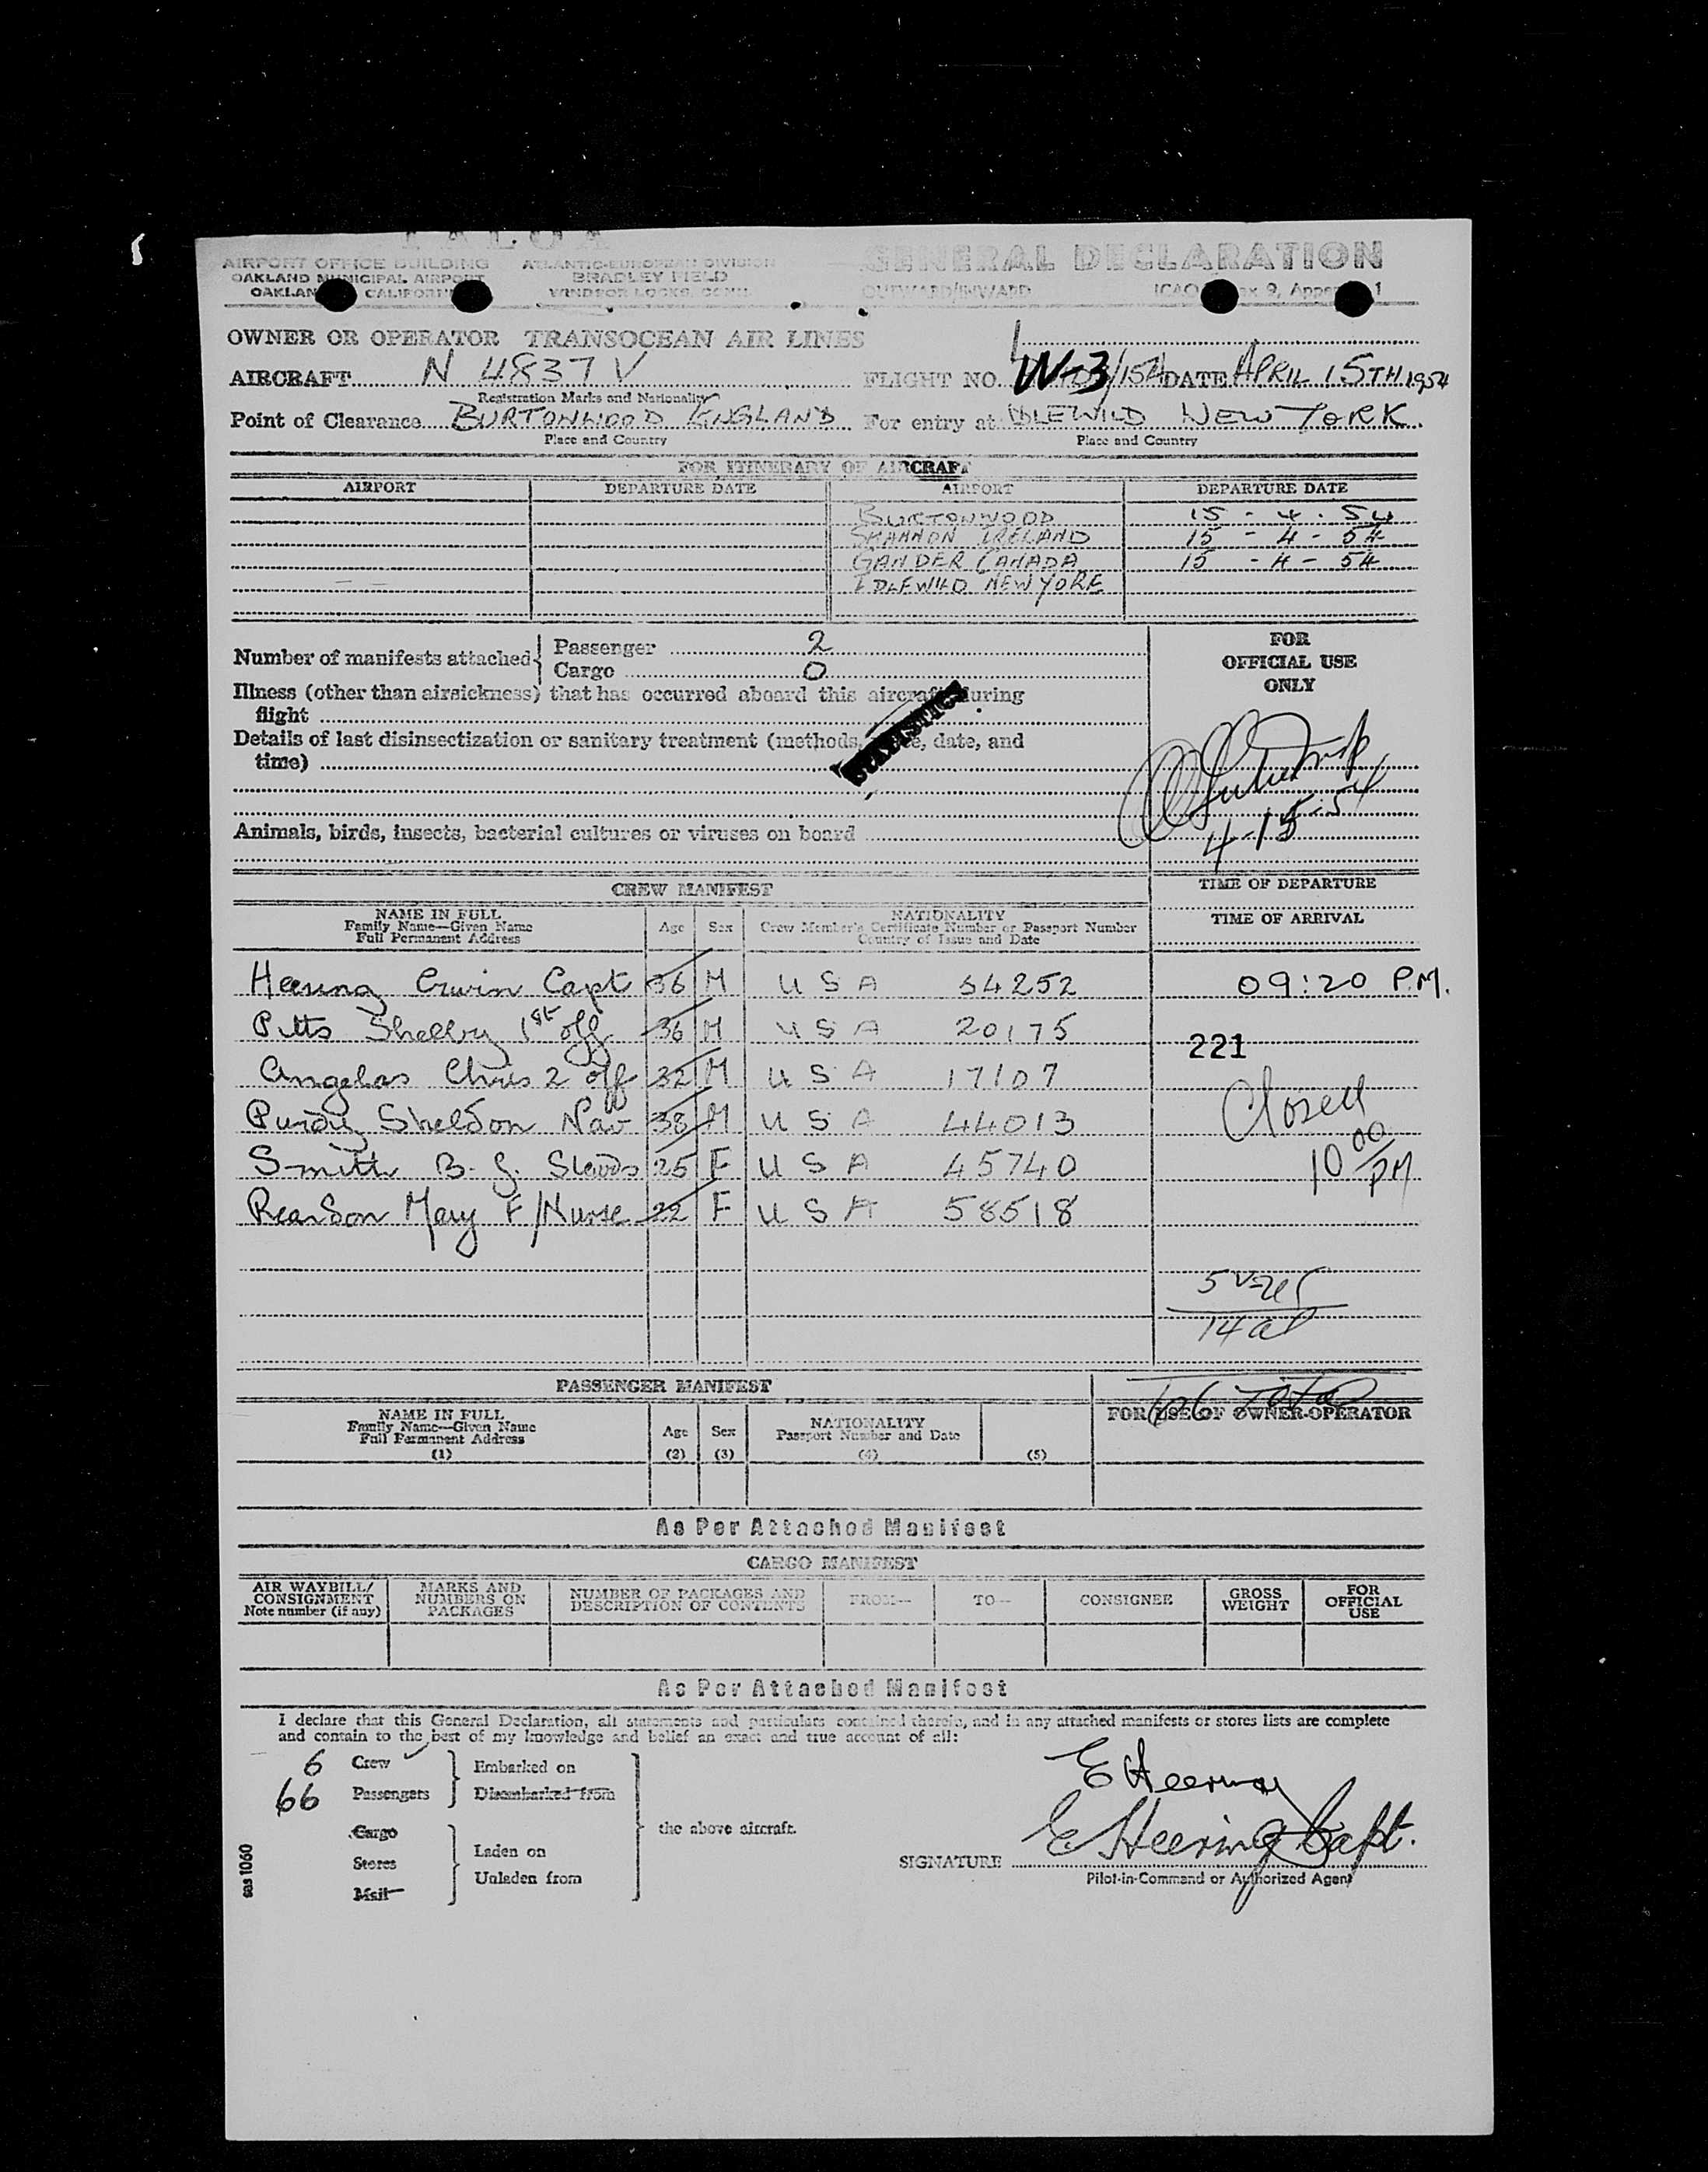 TALOA
AIRPORT OFFICE BUILDING
OAKLAND MUNICIPAL AIRPORT
OAKLAN CALIFORN
ATLANTIC-EUROPEAN DIVISION
BRADLEY FIELD
WINDSOR LOCKS, CONN.
GENERAL DECLARATION
OUTWARD/INWARD
ICAO ex 9, Appen 1
OWNER OR OPERATOR TRANSOCEAN AIR LINES
AIRCRAFT N 4837 V FLIGHT NO W-3 /15A DATE APRIL 15TH 1954
Registration Marks and Nationality
Point of Clearance BURTONWOOD ENGLAND For entry at IDLEWILD NEW YORK
Place and Country Place and Country
FOR ITINERARY OF AIRCRAFT
AIRPORT DEPARTURE DATE AIRPORT DEPARTURE DATE
BURTONWOOD 15 - 4 - 54
SHANNON IRELAND 15 - 4 - 54
GANDER CANADA 15 - 4 - 54
IDLEWILD NEW YORK
Number of manifests attached Passenger 2
Cargo 0
FOR
OFFICIAL USE
ONLY
Illness (other than airsickness) that has occurred aboard this aircraft during
flight
STATISTICS
Details of last disinsectization or sanitary treatment (methods, date, and
time)
4-15-54
Animals, birds, insects, bacterial cultures or viruses on board
CREW MANIFEST
TIME OF DEPARTURE
TIME OF ARRIVAL
NAME IN FULL
Family Name—Given Name
Full Permanent Address
Age Sex
NATIONALITY
Crew Member's Certificate Number or Passport Number
Country of Issue and Date
Heering Erwin Capt 36 M U S A 34252 09:20 P.M.
Pitts Shelby 1st off 36 M U S A 20175
221
Angelos Chris 2 off 32 M U S A 17107
Purdy Sheldon Nav 38 M U S A 44013
Closed
10 00 PM
Smith B. J. Stwds 25 F U S A 45740
Pearson Mary F/Nurse 22 F U S A 58518
14 al
PASSENGER MANIFEST
FOR USE OF OWNER-OPERATOR
NAME IN FULL
Family Name—Given Name
Full Permanent Address
(1)
Age
(2)
Sex
(3)
NATIONALITY
Passport Number and Date
(4)
(5)
As Per Attached Manifest
CARGO MANIFEST
AIR WAYBILL/
CONSIGNMENT
Note number (if any)
MARKS AND
NUMBERS ON
PACKAGES
NUMBER OF PACKAGES AND
DESCRIPTION OF CONTENTS
FROM—
TO—
CONSIGNEE
GROSS
WEIGHT
FOR
OFFICIAL
USE
As Per Attached Manifest
I declare that this General Declaration, all statements and particulars contained therein, and in any attached manifests or stores lists are complete
and contain to the best of my knowledge and belief an exact and true account of all:
6 Crew Embarked on
66 Passengers Disembarked from
the above aircraft.
Cargo
Stores
Mail
Laden on
Unladen from
E Heering
SIGNATURE E Heering Capt.
Pilot-in-Command or Authorized Agent
sas 1060